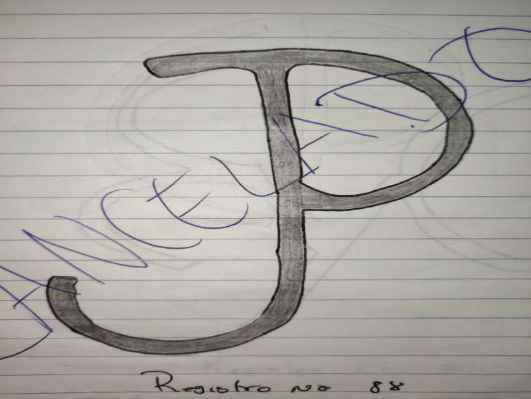 JP
CANCELADO
Registro No 88